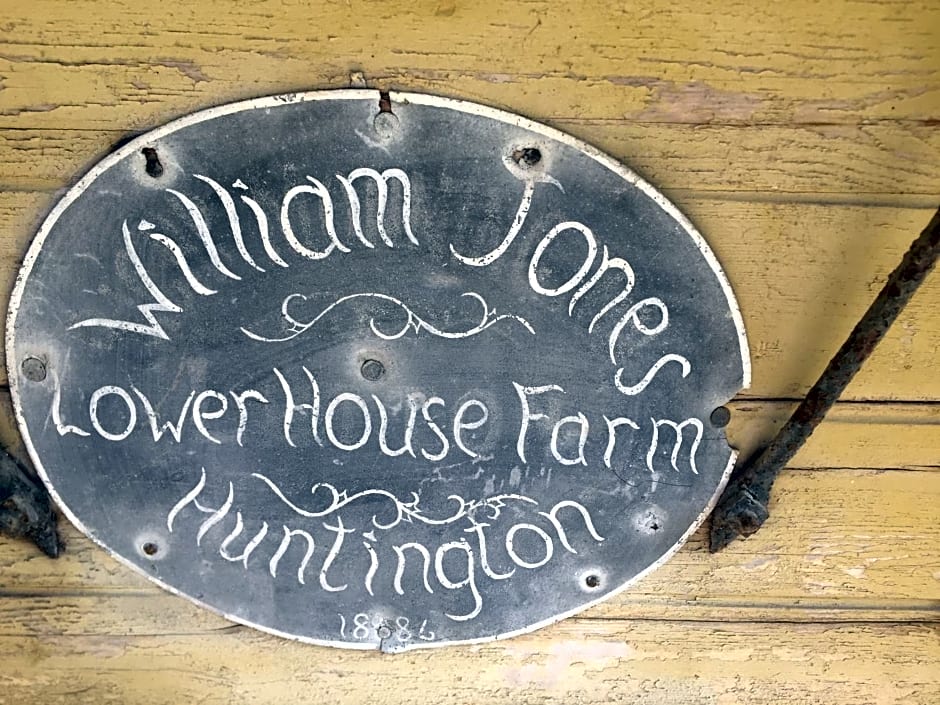 William Jones
Lower House Farm
Huntington